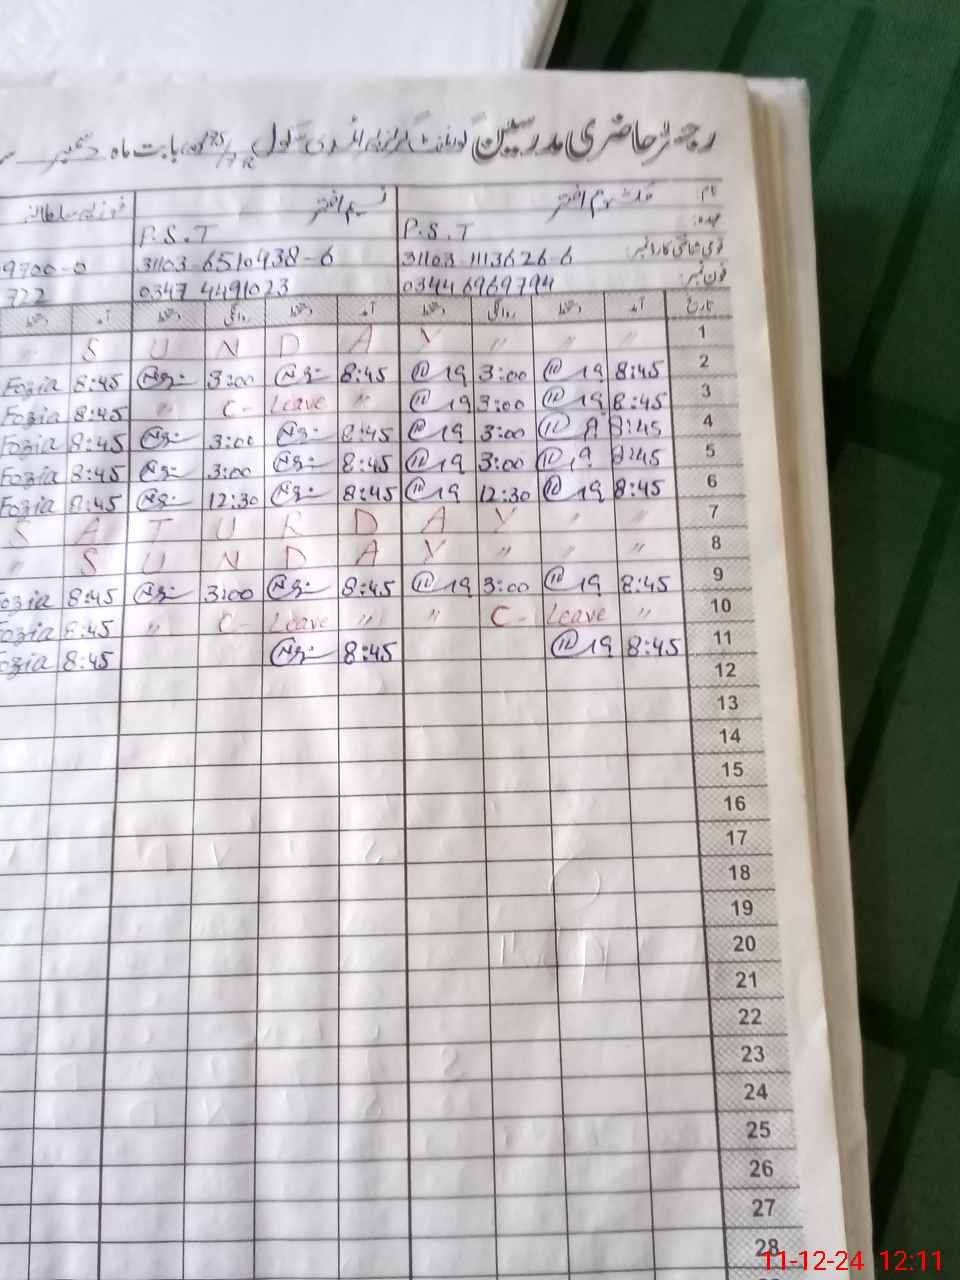 رجسٹر حاضری مدرسین گورنمنٹ گرلز سکول بابت ماہ دسمبر
نام اختر نسیم اختر فوزیہ سلطانہ
عہدہ: P.S.T P.S.T
قومی شناختی کارڈ نمبر: 31103 1113626-6 31103-6510438-6 9700-0
فون نمبر: 03446969794 0347 4491023 722
تاریخ آمد دستخط روانگی دستخط آمد دستخط روانگی دستخط آمد دستخط
" S U N D A Y " " " 1
Fozia 8:45 3:00 8:45 19 3:00 19 8:45 2
Fozia 8:45 " C- Leave " 19 3:00 19 8:45 3
Fozia 8:45 3:00 8:45 19 3:00 8:45 4
Fozia 8:45 3:00 8:45 19 3:00 19 8:45 5
Fozia 8:45 12:30 8:45 19 12:30 19 8:45 6
S A T U R D A Y " " 7
" S U N D A Y " " " 8
Fozia 8:45 3:00 8:45 19 3:00 19 8:45 9
Fozia 8:45 " C- Leave " " C- Leave " 10
Fozia 8:45 8:45 19 8:45 11
12
13
14
15
16
17
18
19
20
21
22
23
24
25
26
27
28
11-12-24 12:11